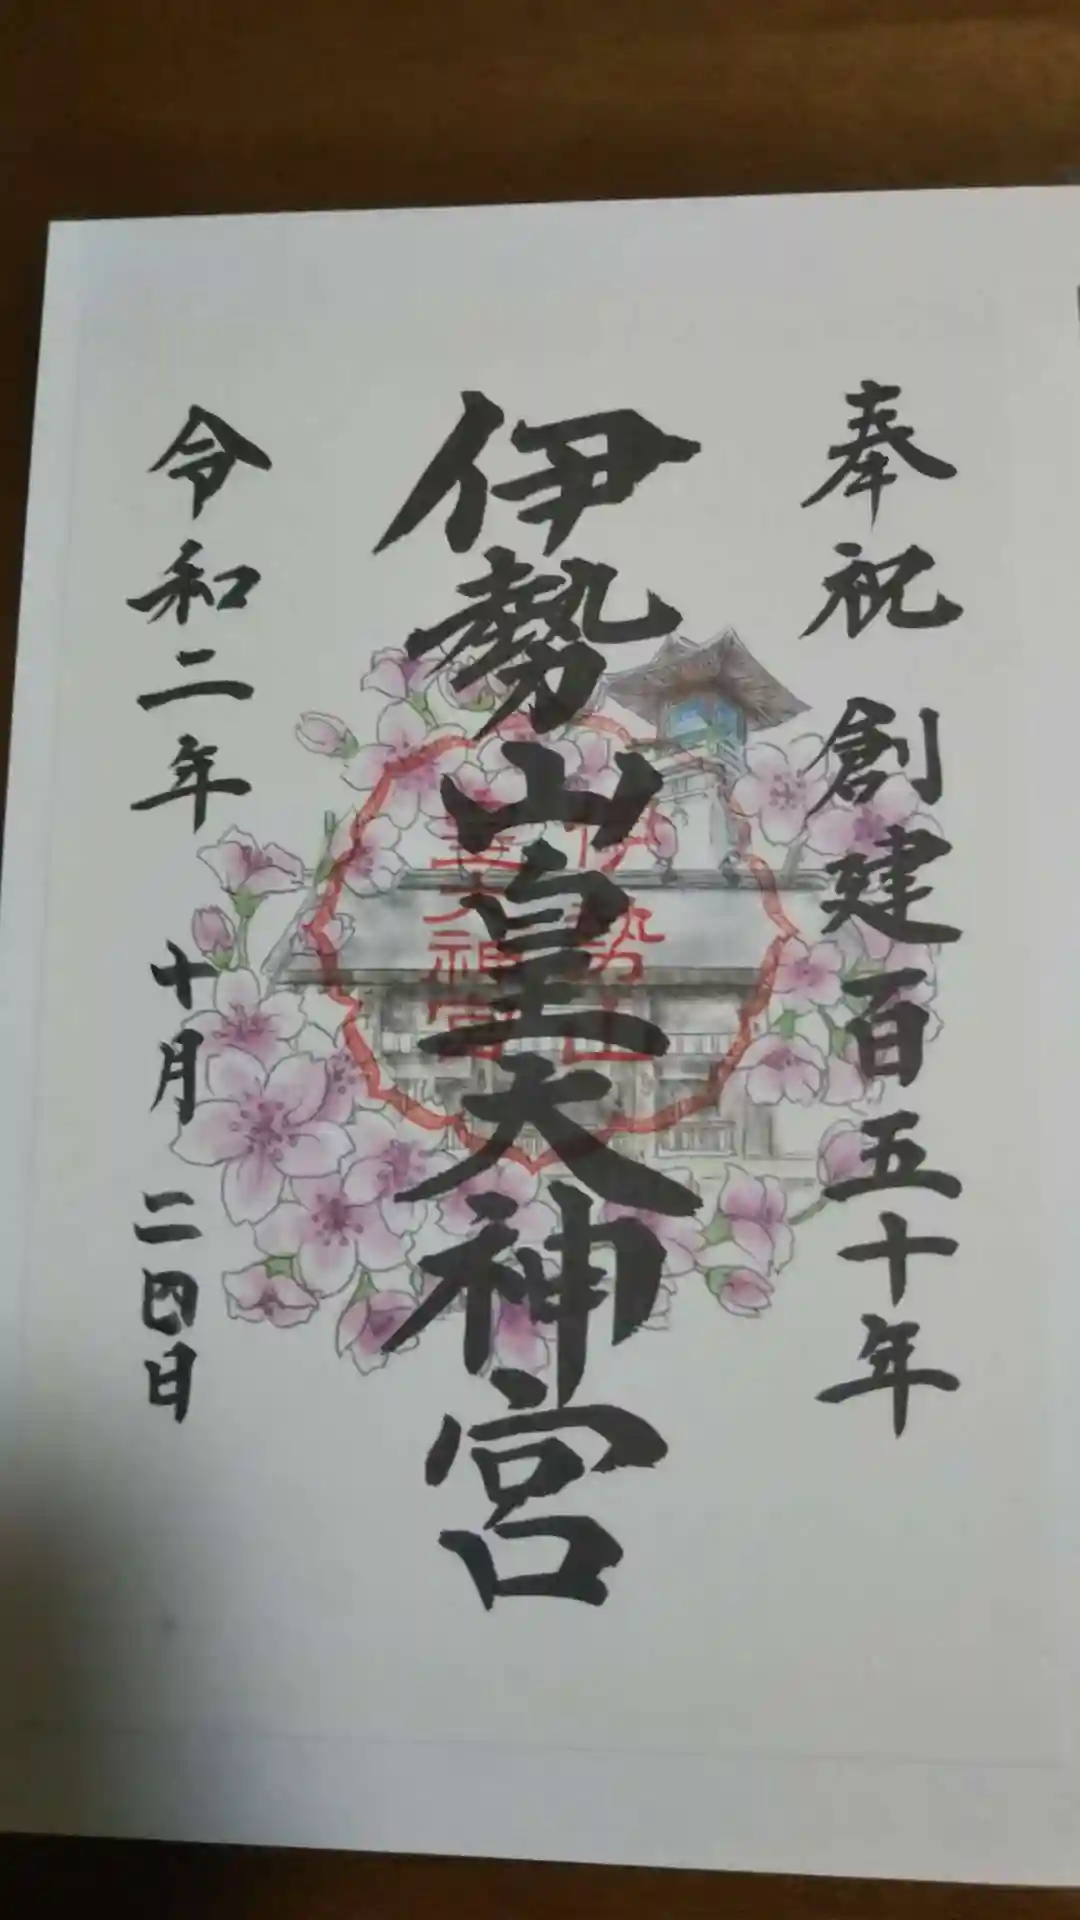 奉祝 創建百五十年
伊勢山皇大神宮
伊勢山
皇大神宮
令和二年 十月 二四日